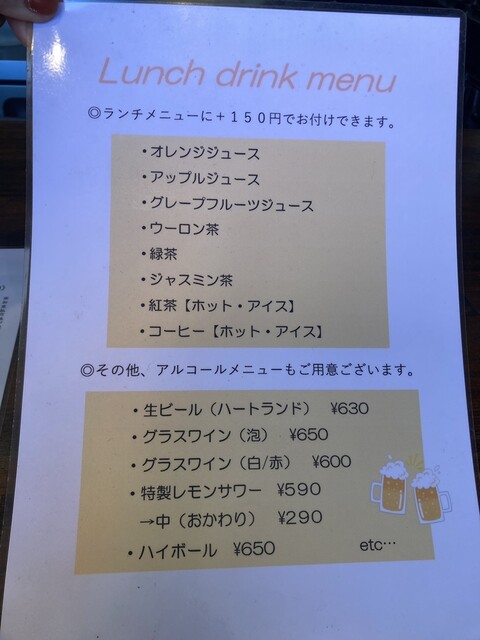 Lunch drink menu
◎ランチメニューに＋１５０円でお付けできます。
・オレンジジュース
・アップルジュース
・グレープフルーツジュース
・ウーロン茶
・緑茶
・ジャスミン茶
・紅茶【ホット・アイス】
・コーヒー【ホット・アイス】
◎その他、アルコールメニューもご用意ございます。
・生ビール（ハートランド） ¥630
・グラスワイン（泡） ¥650
・グラスワイン（白/赤） ¥600
・特製レモンサワー ¥590
→中（おかわり） ¥290
・ハイボール ¥650 etc…